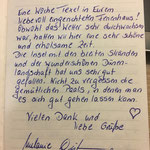 Eine Woche Texel in Eurem
liebevoll eingerichteten Ferienhaus!
Obwohl das Wetter sehr durchwachsen
war, hatten wir hier eine sehr schöne
und erholsame Zeit.
Die Insel mit den breiten Stränden
und der wunderschönen Dünen-
landschaft hat uns sehr gut
gefallen. Nicht zu vergessen die
gemütlichen Paals, in denen man
es sich gut gehen lassen kann.
Vielen Dank und
liebe Grüße